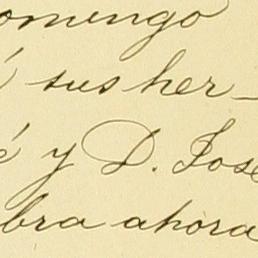 omingo
é sus her-
é y D. José
bra ahora